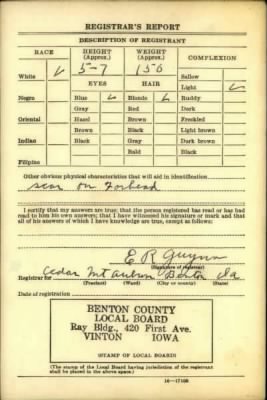 REGISTRAR'S REPORT
DESCRIPTION OF REGISTRANT
RACE HEIGHT (Approx.) WEIGHT (Approx.) COMPLEXION
White ✓ 5-7 150 Sallow
EYES HAIR Light ✓
Negro Blue ✓ Blonde ✓ Ruddy
Gray Red Dark
Oriental Hazel Brown Freckled
Brown Black Light brown
Indian Black Gray Dark brown
Bald Black
Filipino
Other obvious physical characteristics that will aid in identification
scar on Forhead
I certify that my answers are true; that the person registered has read or has had
read to him his own answers; that I have witnessed his signature or mark and that
all of his answers of which I have knowledge are true, except as follows:
E R Guynn
(Signature of registrar)
Registrar for Cedar Mt Auburn Benton Ia
(Precinct) (Ward) (City or county) (State)
Date of registration
BENTON COUNTY
LOCAL BOARD
Ray Bldg., 420 First Ave.
VINTON IOWA
(STAMP OF LOCAL BOARD)
(The stamp of the Local Board having jurisdiction of the registrant
shall be placed in the above space.)
16-17105